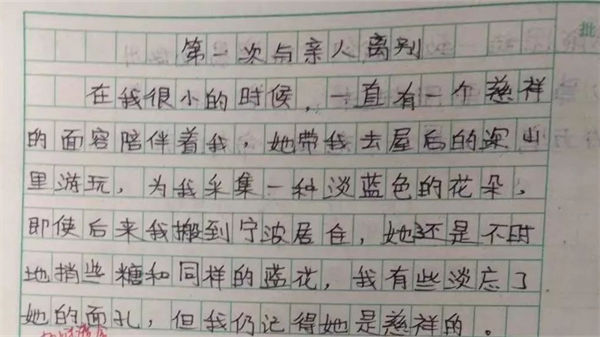 第一次与亲人离别
在我很小的时候，一直有一个慈祥
的面容陪伴着我，她带我去屋后的深山
里游玩，为我采集一种淡蓝色的花朵，
即使后来我搬到宁波居住，她还是不时
地捎些糖和同样的蓝花，我有些淡忘了
她的面孔，但我仍记得她是慈祥的。
批